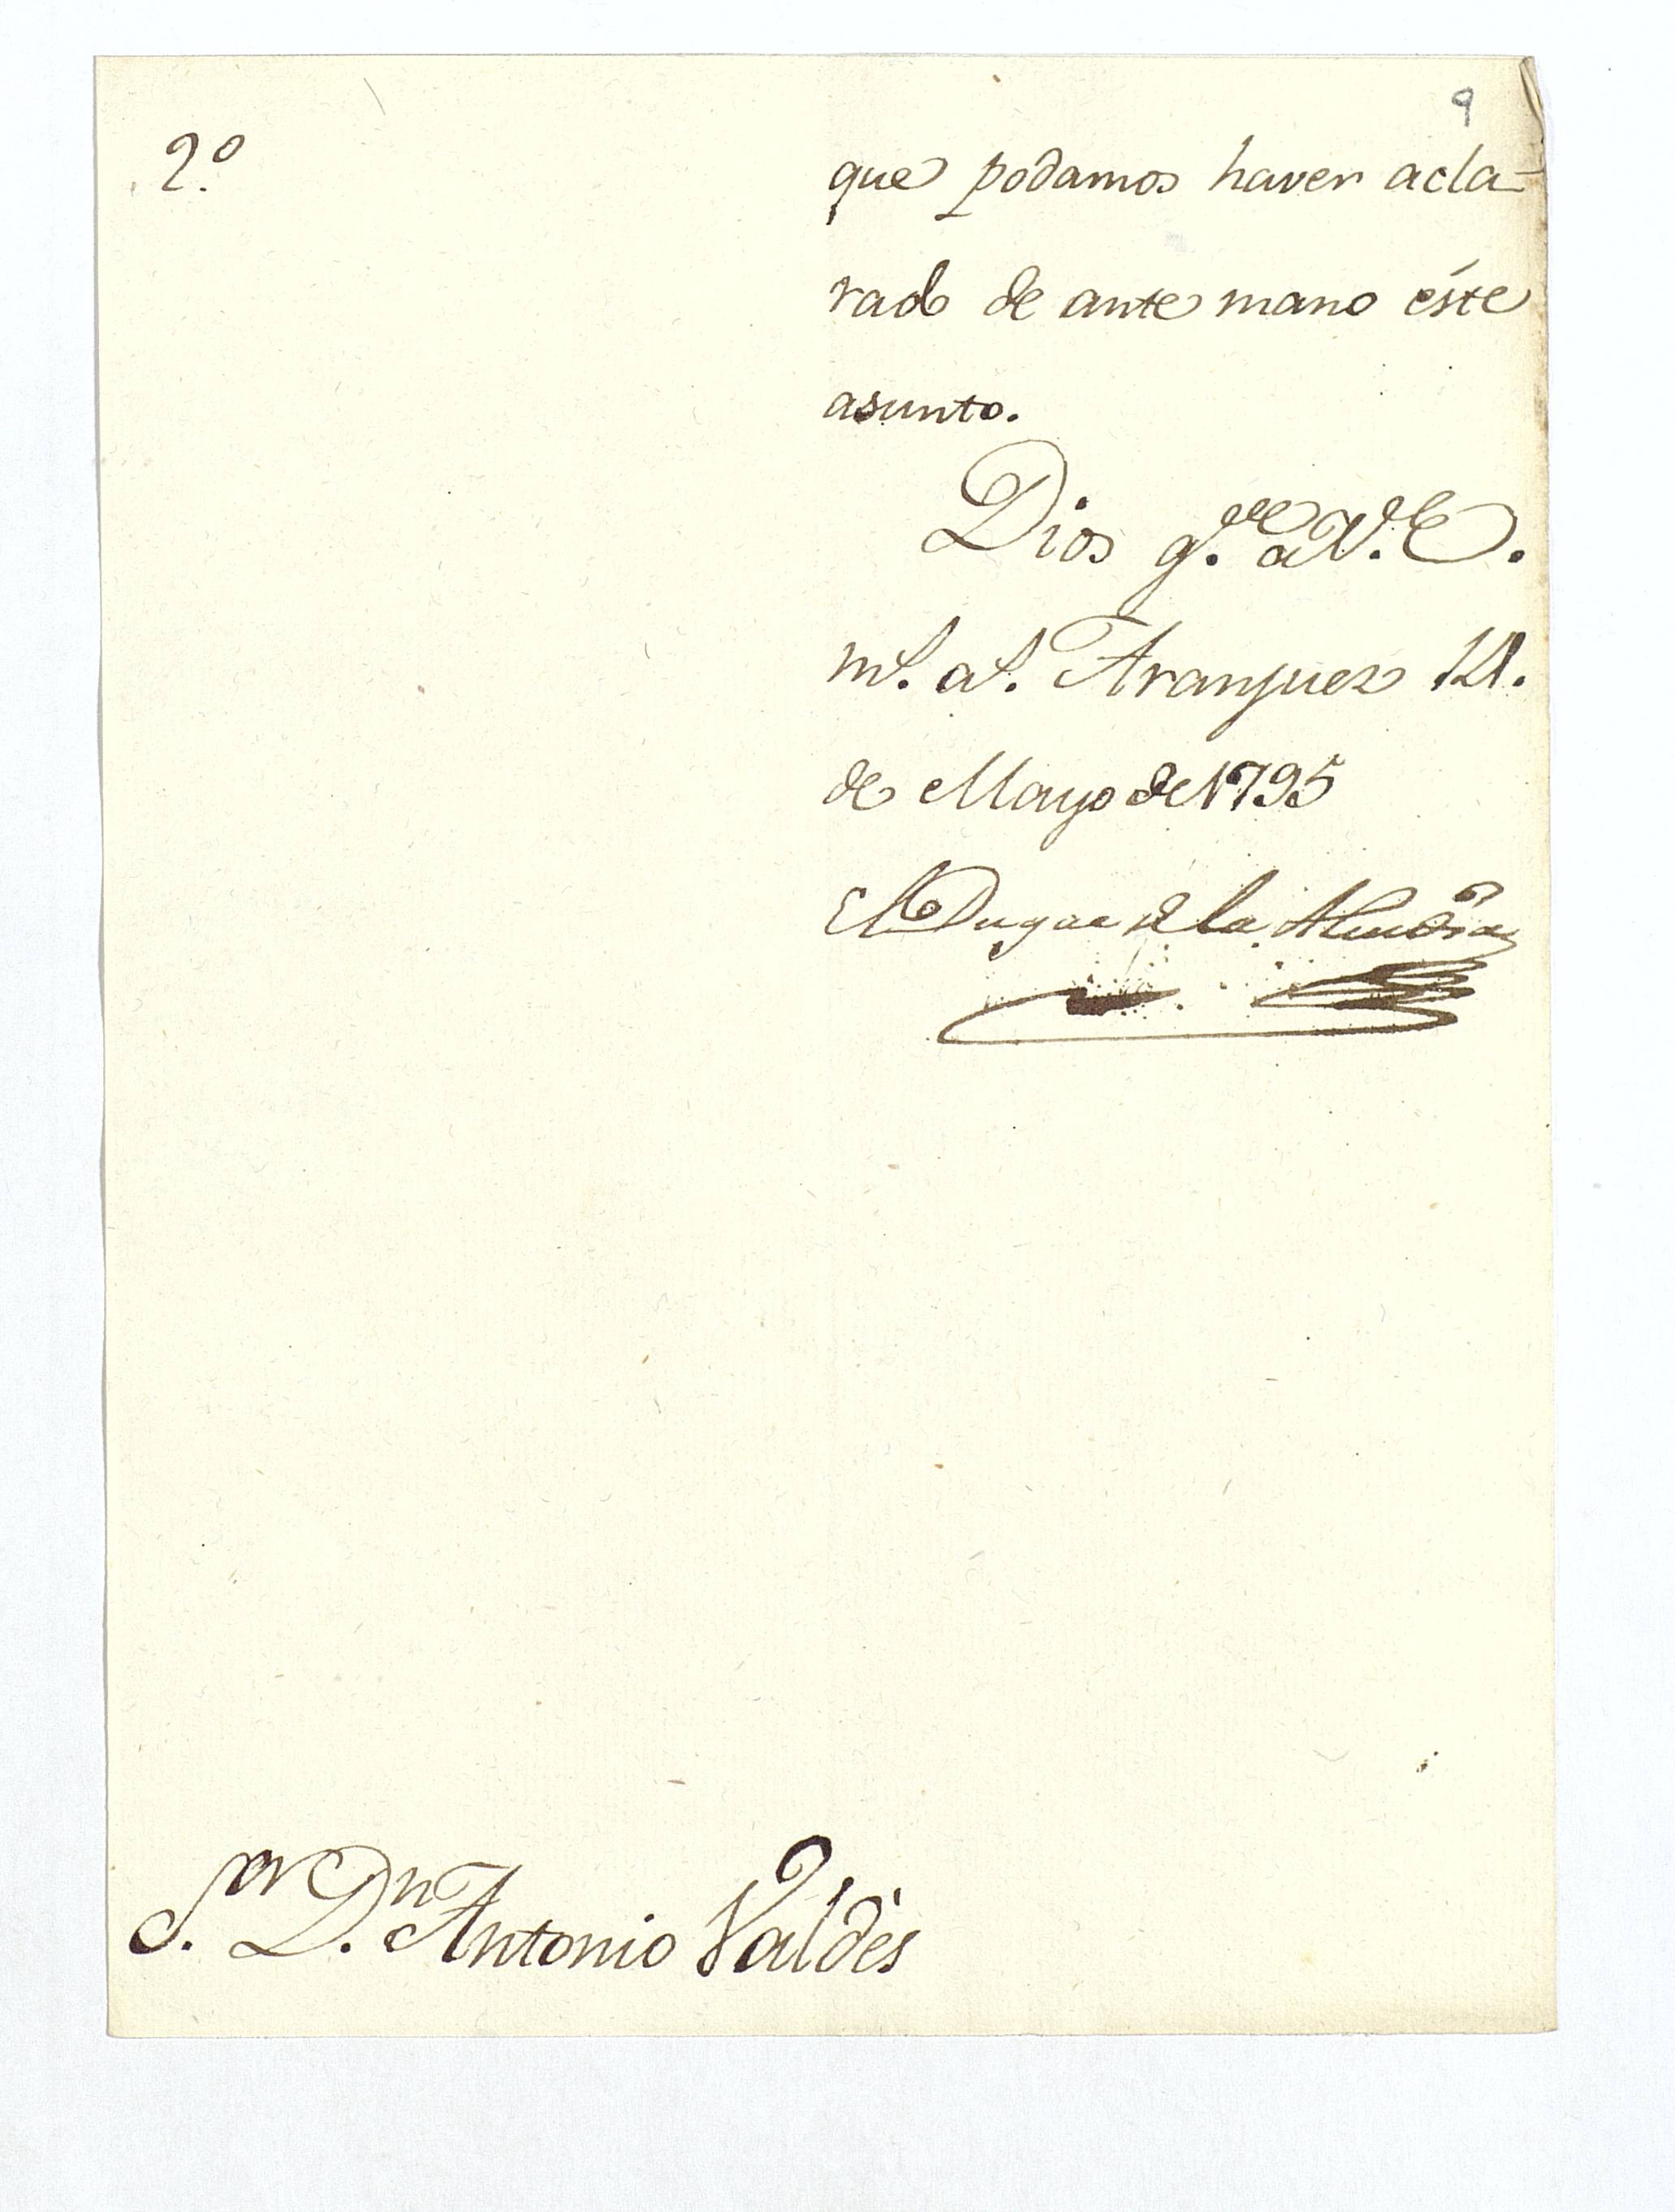 9
2.º
que podamos haver acla-
rado de ante mano éste
asunto.
Dios g.ue a V.E.
m.s a.s Aranjuez 12.
de Mayo de 1795
El Duque de la Alcudia
S.or D.n Antonio Valdès